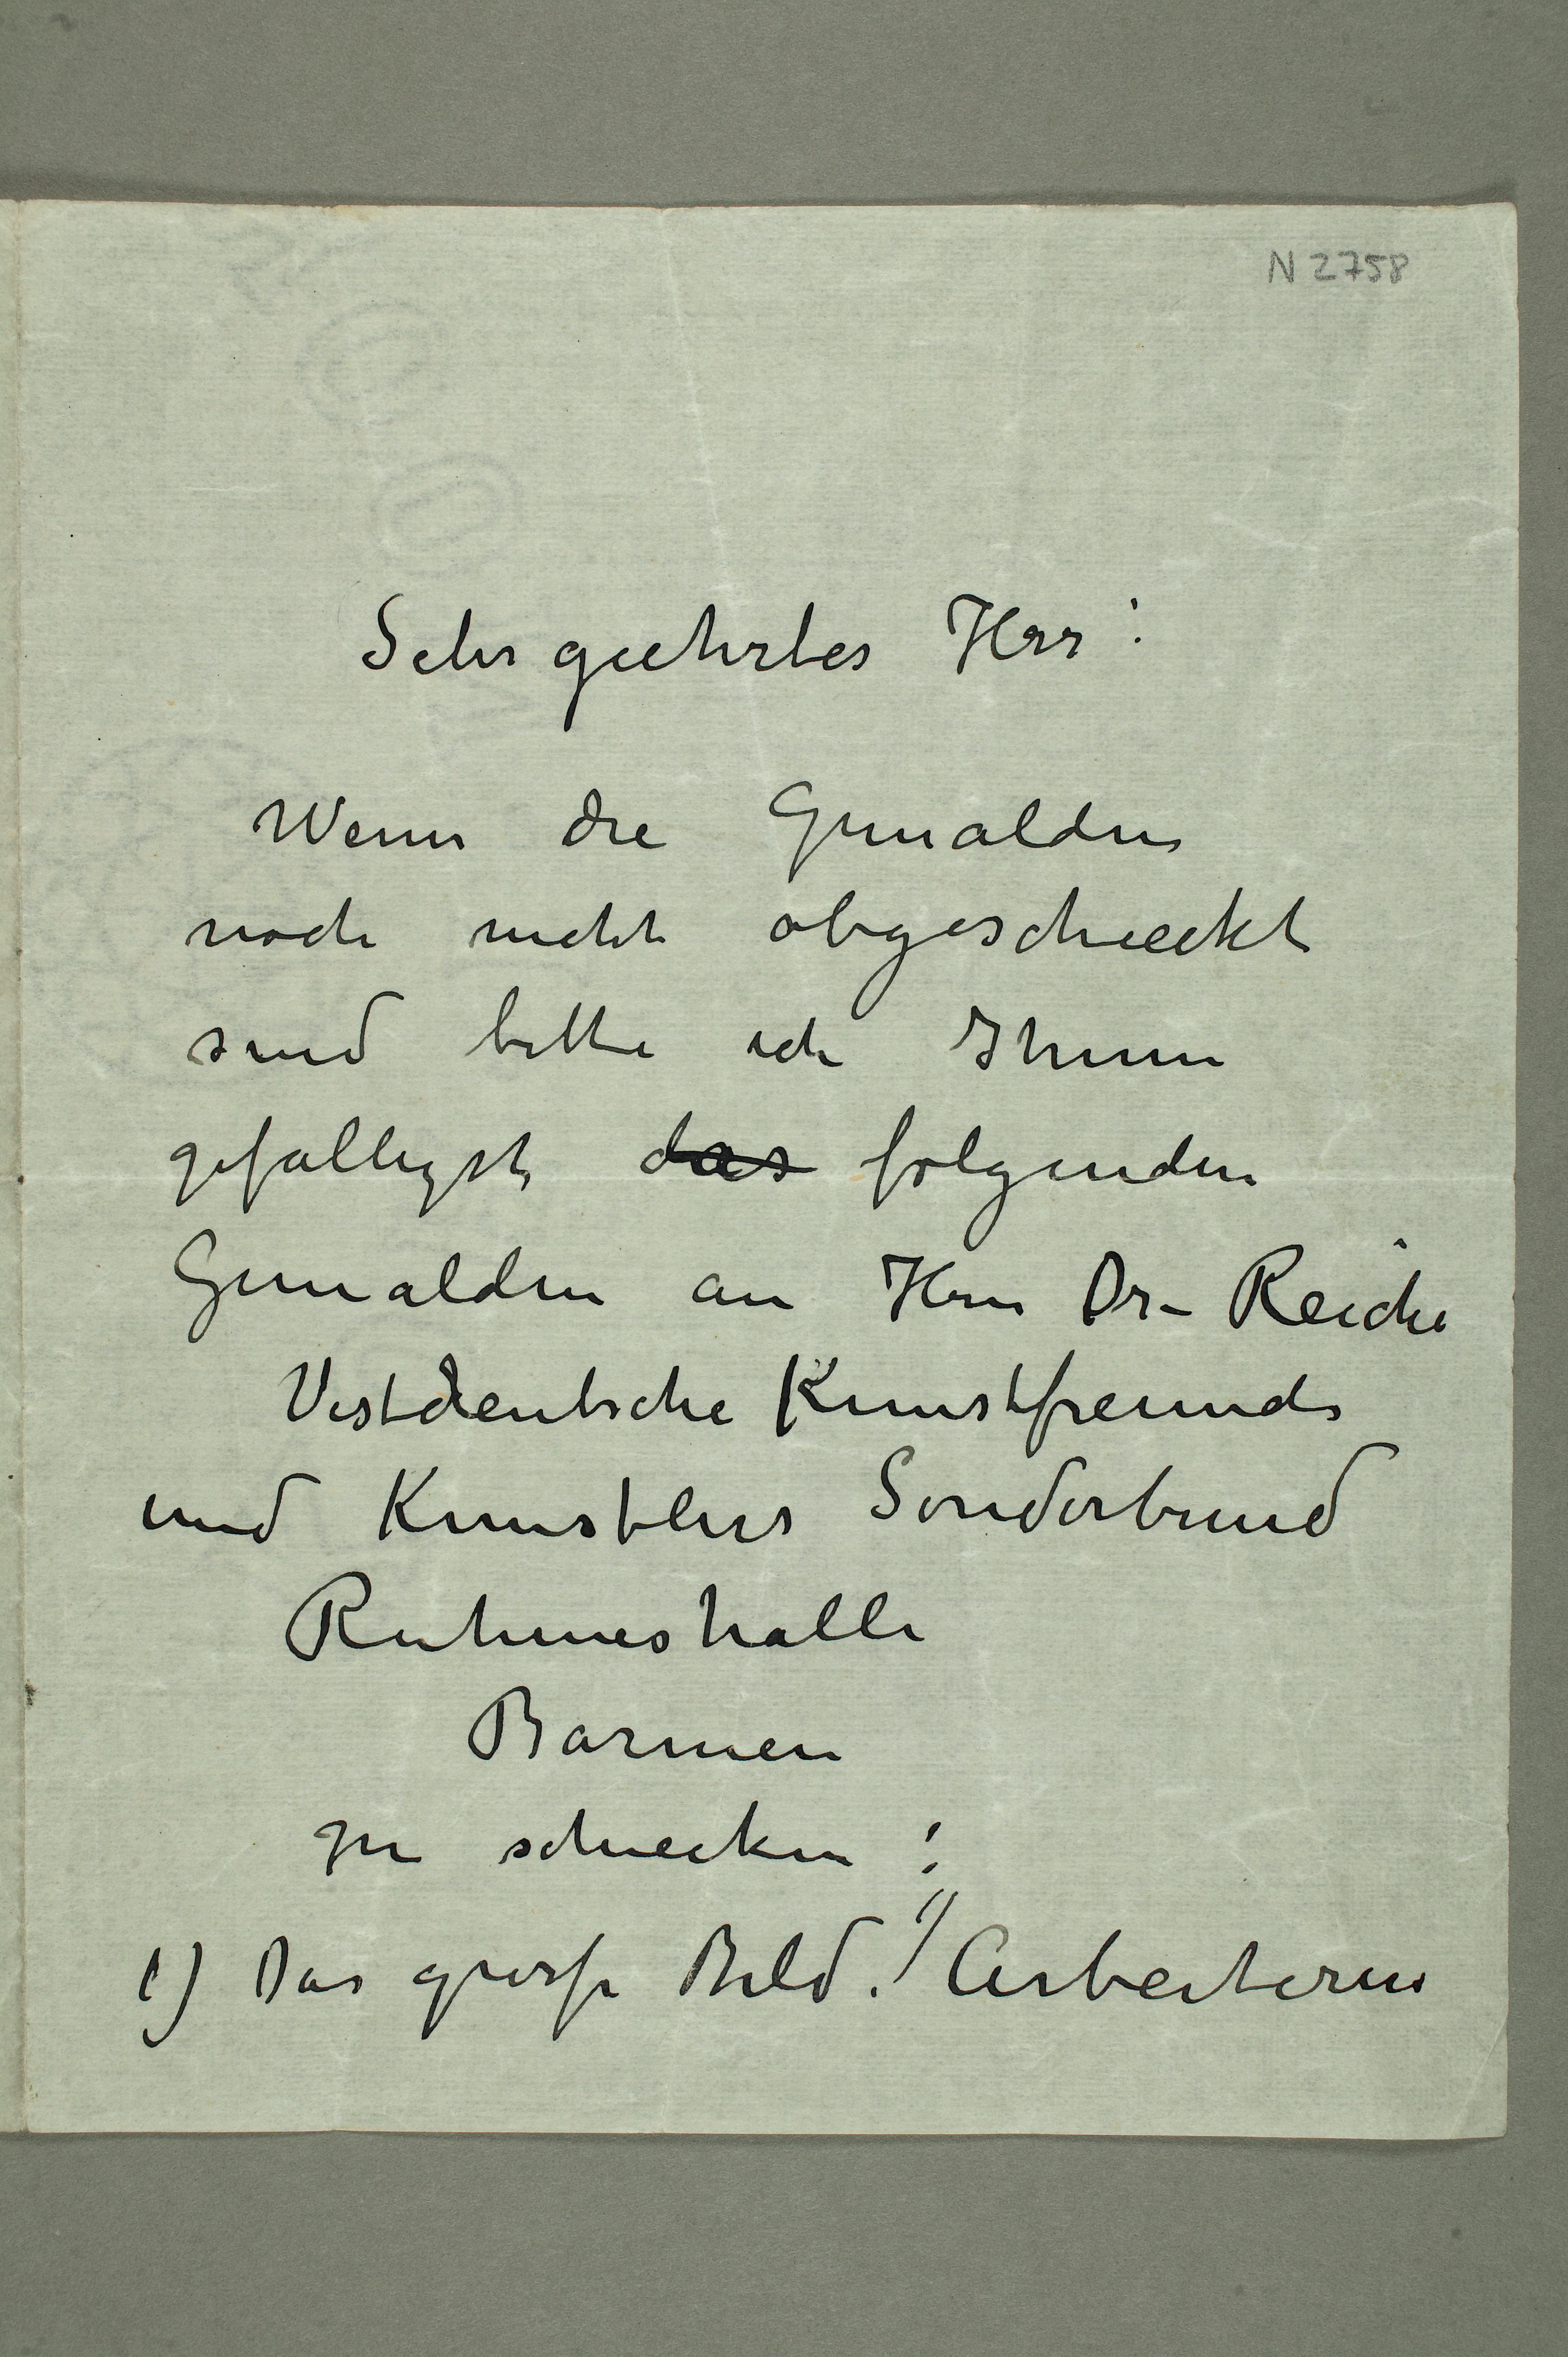 N 2758
Sehr geehrter Herr!
Wenn die Gemalden
noch nicht abgeschieckt
sind bitte ich Ihnen
gefalligst das folgenden
Gemalden an Herrn Dr– Reiche
Vestdeutsche Kunstfreunde
und Kunstlers Sonderbund
Ruhmeshalle
Barmen
zu schiecken :
1) Das grosse Bild. "/ Arbeiteren